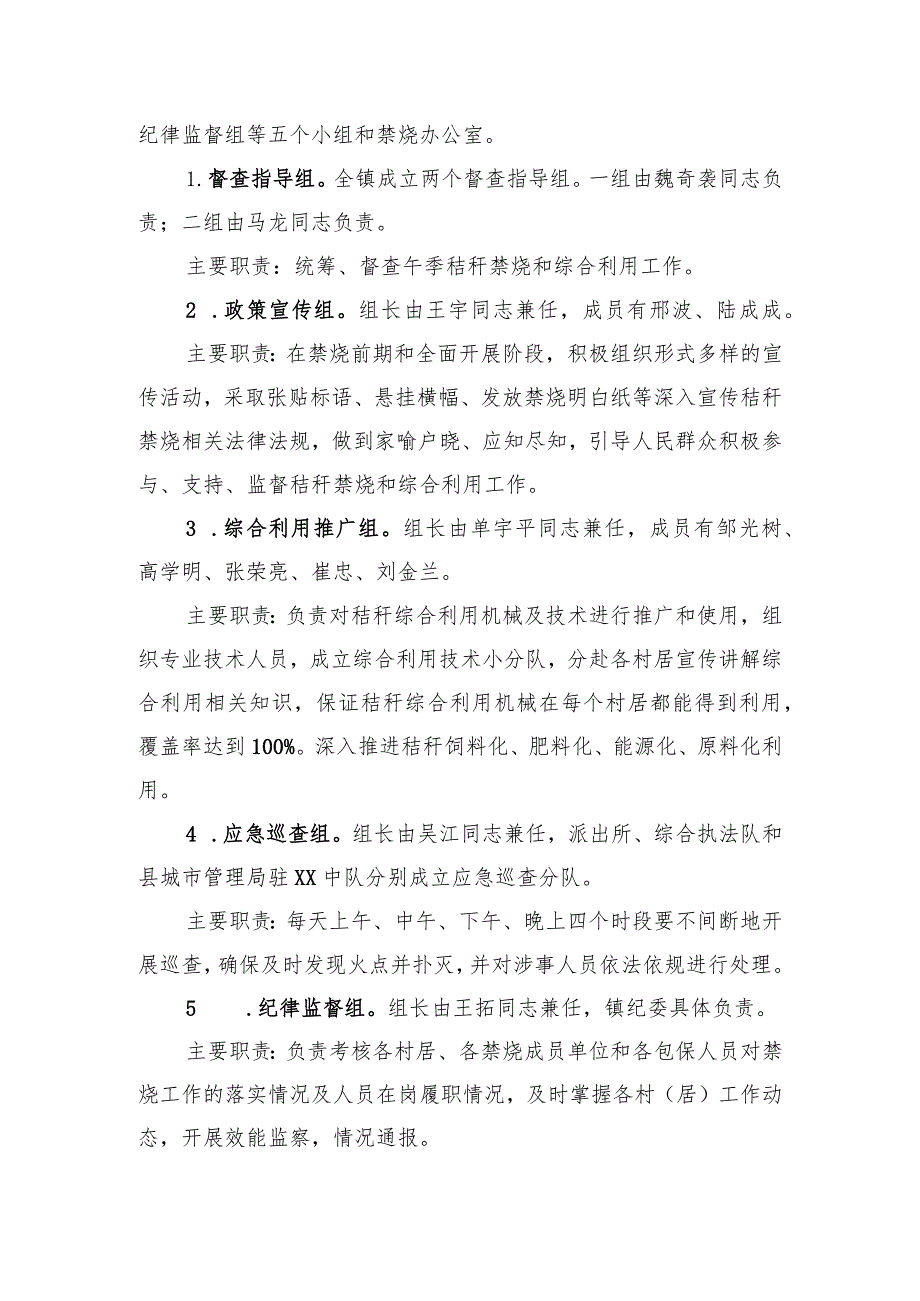 纪律监督组等五个小组和禁烧办公室。
1.督查指导组。全镇成立两个督查指导组。一组由魏奇袭同志负
责；二组由马龙同志负责。
主要职责：统筹、督查午季秸秆禁烧和综合利用工作。
2 .政策宣传组。组长由王宇同志兼任，成员有邢波、陆成成。
主要职责：在禁烧前期和全面开展阶段，积极组织形式多样的宣
传活动，采取张贴标语、悬挂横幅、发放禁烧明白纸等深入宣传秸秆
禁烧相关法律法规，做到家喻户晓、应知尽知，引导人民群众积极参
与、支持、监督秸秆禁烧和综合利用工作。
3 .综合利用推广组。组长由单宇平同志兼任，成员有邹光树、
高学明、张荣亮、崔忠、刘金兰。
主要职责：负责对秸秆综合利用机械及技术进行推广和使用，组
织专业技术人员，成立综合利用技术小分队，分赴各村居宣传讲解综
合利用相关知识，保证秸秆综合利用机械在每个村居都能得到利用，
覆盖率达到100%。深入推进秸秆饲料化、肥料化、能源化、原料化利
用。
4 .应急巡查组。组长由吴江同志兼任，派出所、综合执法队和
县城市管理局驻XX中队分别成立应急巡查分队。
主要职责：每天上午、中午、下午、晚上四个时段要不间断地开
展巡查，确保及时发现火点并扑灭，并对涉事人员依法依规进行处理。
5 .纪律监督组。组长由王拓同志兼任，镇纪委具体负责。
主要职责：负责考核各村居、各禁烧成员单位和各包保人员对禁
烧工作的落实情况及人员在岗履职情况，及时掌握各村（居）工作动
态，开展效能监察，情况通报。